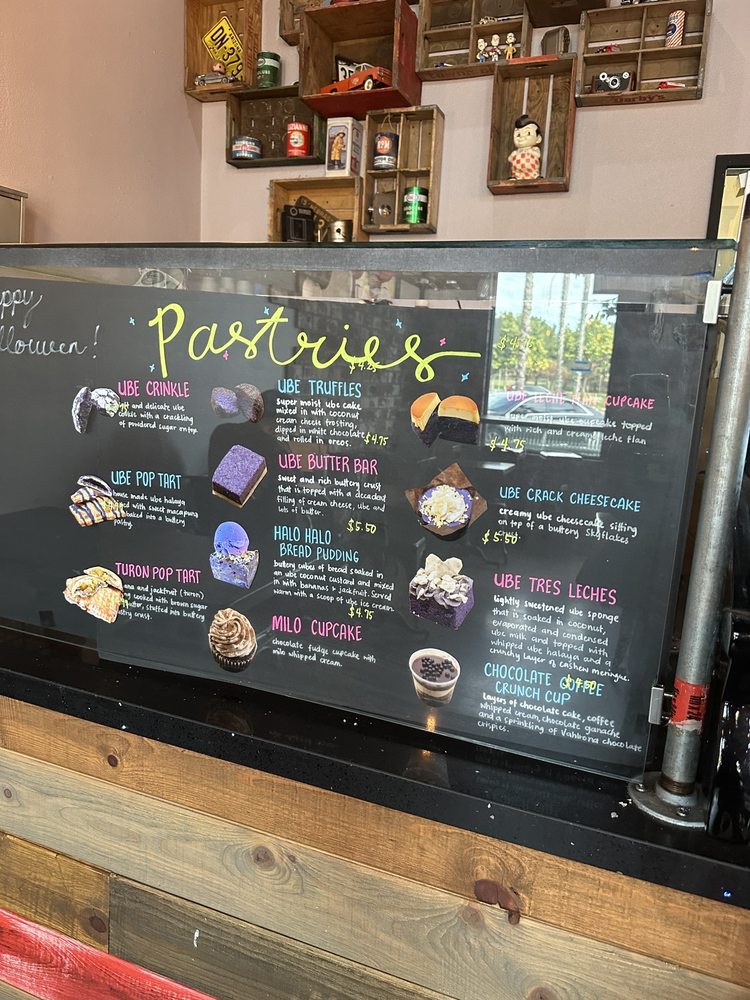 DN-379
Darby's
ppy
llowen!
Pastries
UBE CRINKLE
and delicate ube
cookie with a crackling
of powdered sugar on top
UBE POP TART
house made ube halaya
with sweet macapuno
baked into a buttery
pastry.
TURON POP TART
and jackfruit (turon)
cooked with brown sugar
stuffed into buttery
crust.
$4.25
UBE TRUFFLES
super moist ube cake
mixed in with coconut
cream cheese frosting,
dipped in white chocolate
and rolled in oreos.
$4.75
UBE BUTTER BAR
sweet and rich buttery crust
that is topped with a decadent
filling of cream cheese, ube and
lots of butter.
$5.50
HALO HALO
BREAD PUDDING
buttery cubes of bread soaked in
an ube coconut custard and mixed
in with bananas & jackfruit. Served
warm with a scoop of ube ice cream.
$4.75
MILO CUPCAKE
chocolate fudge cupcake with
milo whipped cream.
UBE LECHE FLAN CUPCAKE
super moist ube cupcake topped
with rich and creamy leche flan
$4.75
UBE CRACK CHEESECAKE
creamy ube cheesecake sitting
on top of a buttery Skyflakes
$5.50
UBE TRES LECHES
lightly sweetened ube sponge
that is soaked in coconut,
evaporated and condensed
ube milk and topped with
whipped ube halaya and a
crunchy layer of cashew meringue.
CHOCOLATE COFFEE
CRUNCH CUP
layers of chocolate cake, coffee
whipped cream, chocolate ganache
and a sprinkling of Valrhona chocolate
crispies.